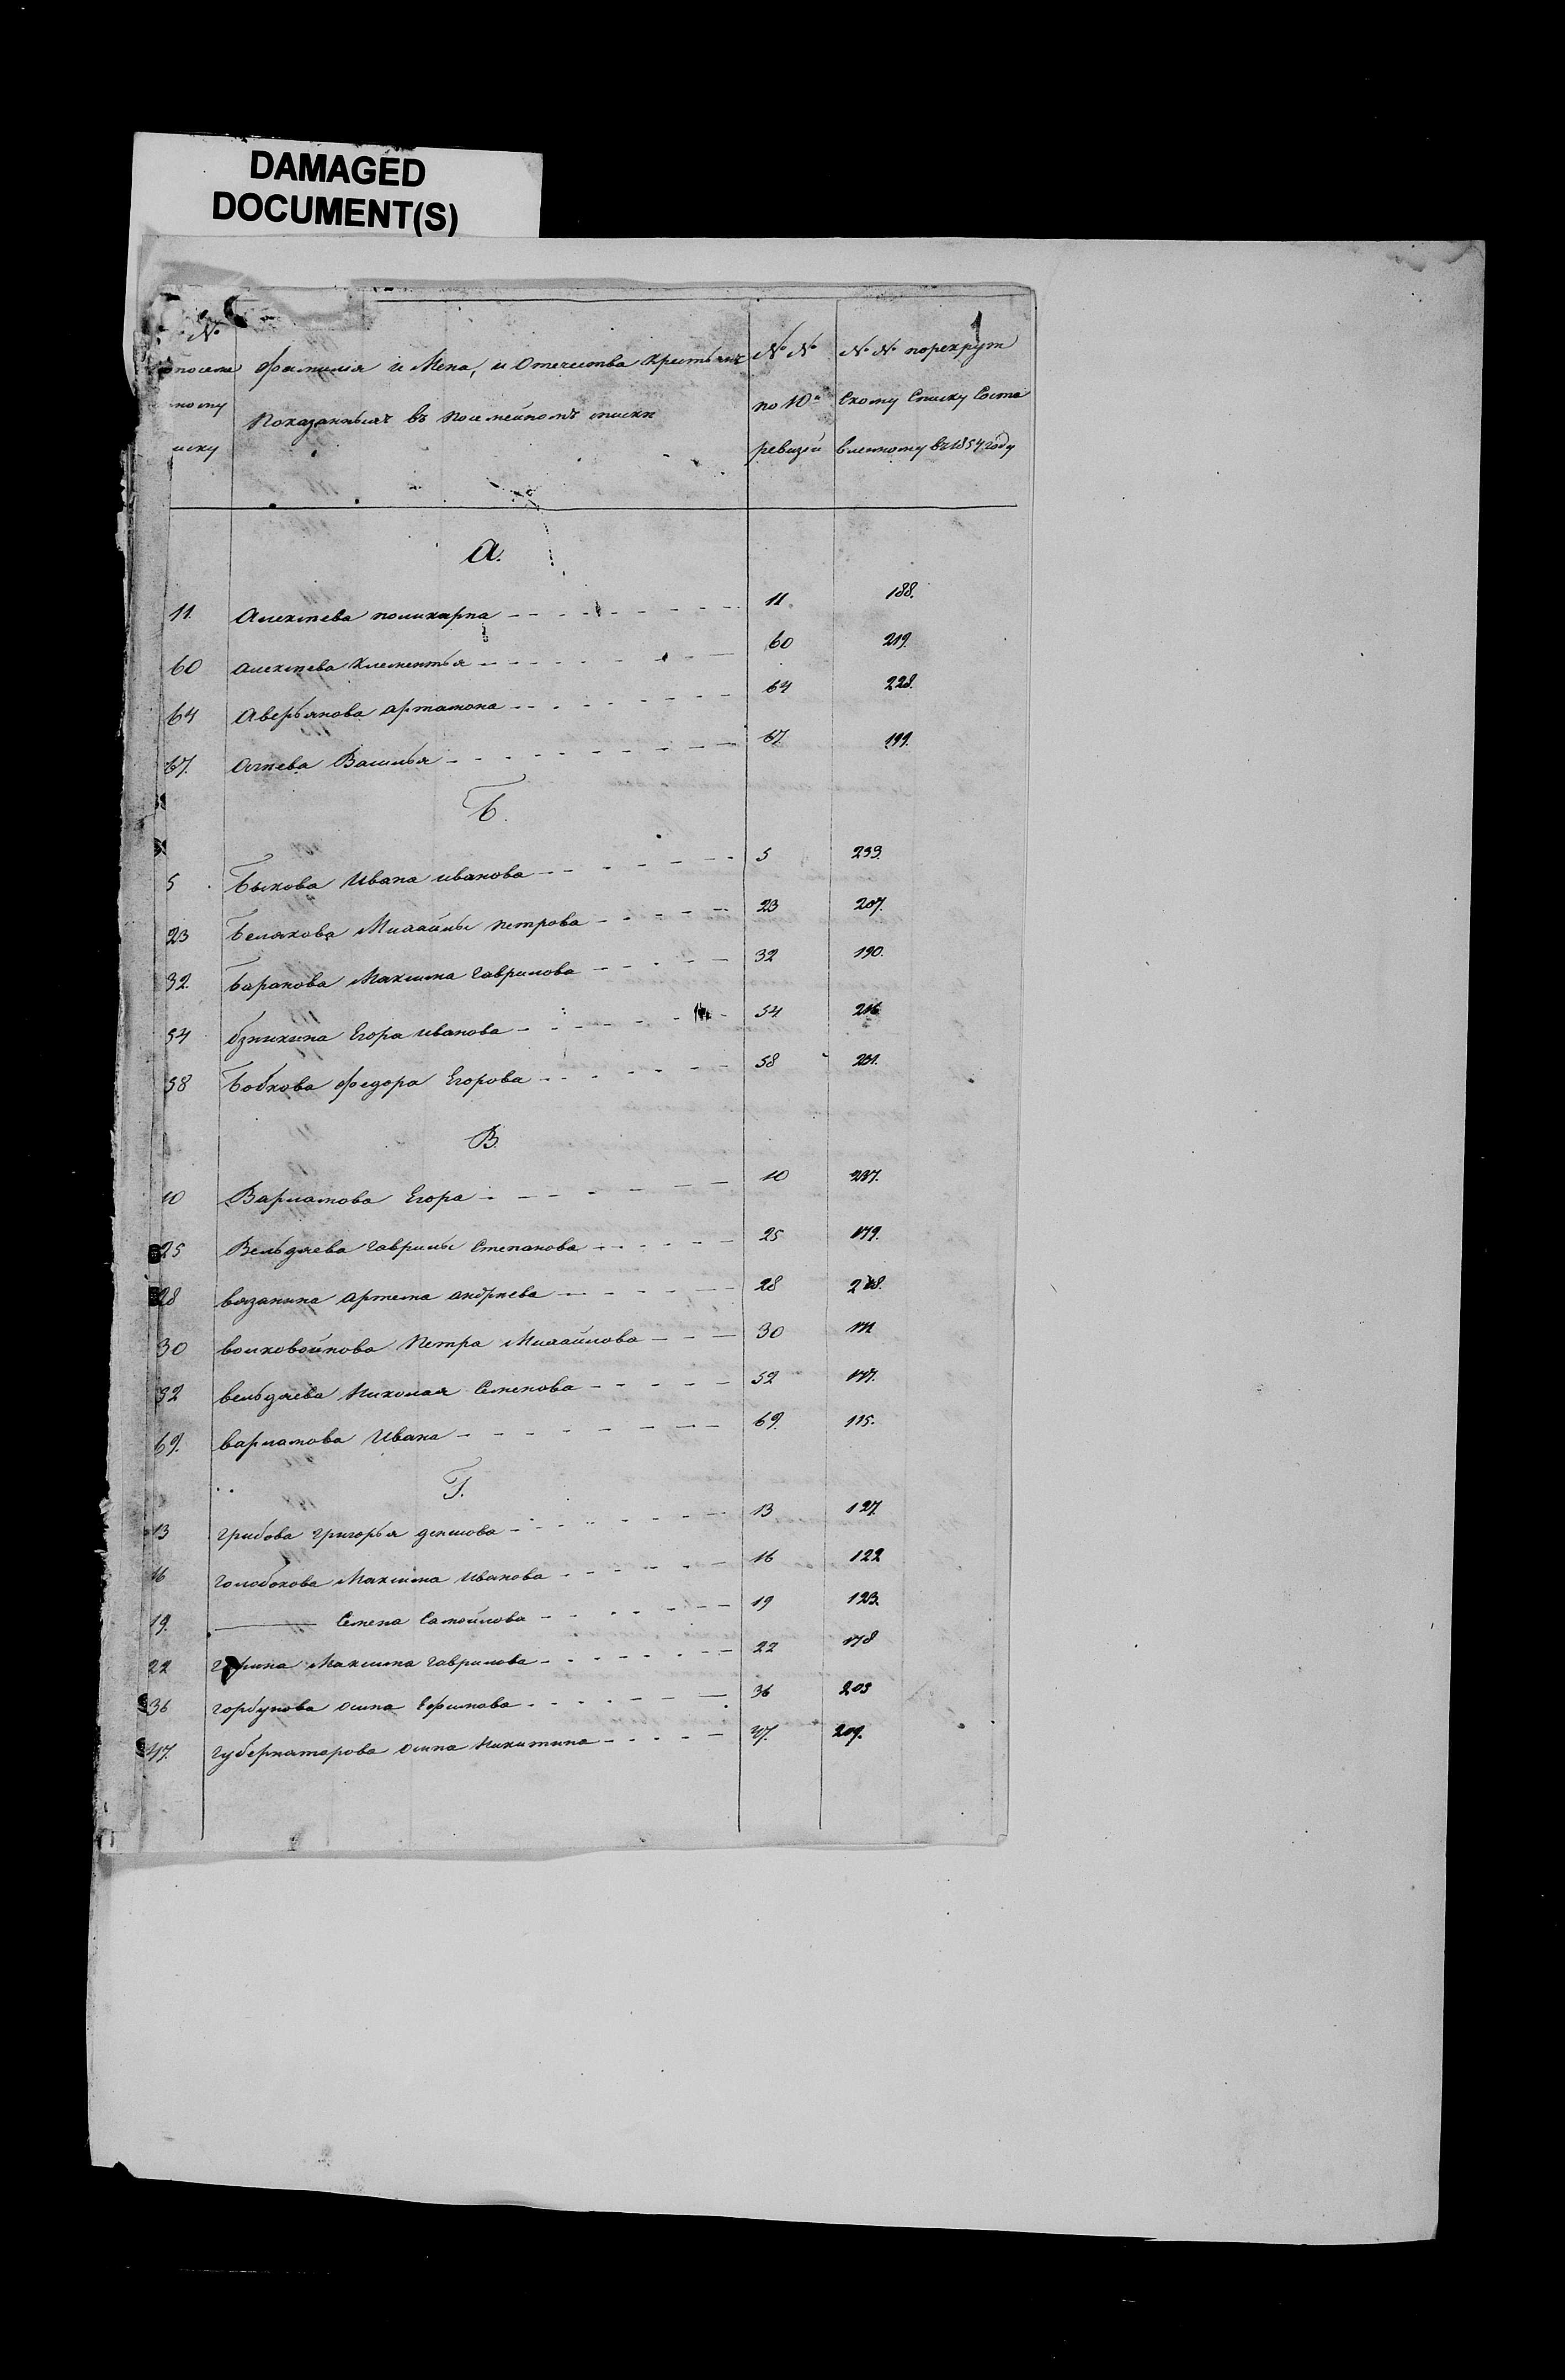 DAMAGED
DOCUMENT(S)
1
№ Фамилия и Мена, и Отечества Крестьянъ № № № № порекрут
по 10й скому Списку Соста
Показанныхъ въ посемейномъ списки
ревизіи вленному въ 1854 году
А.
11. Алексѣева поликарпа 11. 188.
60 алексѣева клементья 60 219.
64 Аверьянова артамона 64 228.
67. Василья 67. 199.
Б.
5 Быкова Ивана иванова 5 233.
23 Белякова Михайлы петрова 23 207.
32. Баранова Максима гаврилова 32 190.
54 Егора иванова 54
58 Бобкова федора Егорова 58 231.
В.
10 Варламова Егора 10 237.
25 Вельдяева гаврилы Степанова 25 179.
28 вязанина артема андрѣева 28
30 Петра Михайлова 30
52 вельдяева Николая Семенова 52 177.
69. варламова Ивана 69. 115.
Г.
13 грибова григорья денисова 13 127.
16 голобокова Максима иванова 16 122
19. Семена Самойлова 19 123.
22 Максима гаврилова 22 178
36 горбунова осипа ефимова 36 203
47. губернаторова осипа никитина 47. 209.